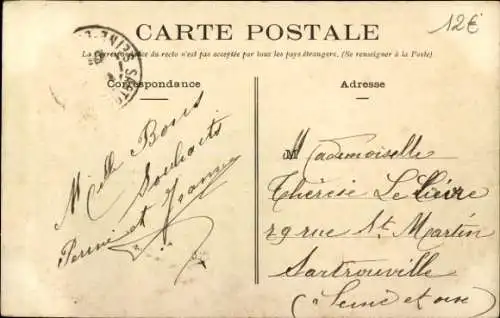 CARTE POSTALE
12€
La Correspondance du recto n'est pas acceptée par tous les pays étrangers. (Se renseigner à la Poste)
Correspondance
Adresse
Mille Bons
Souhaits
et
Mademoiselle
Thérèse Le Lièvre
29 rue St. Martin
Sartrouville
(Seine et oise)